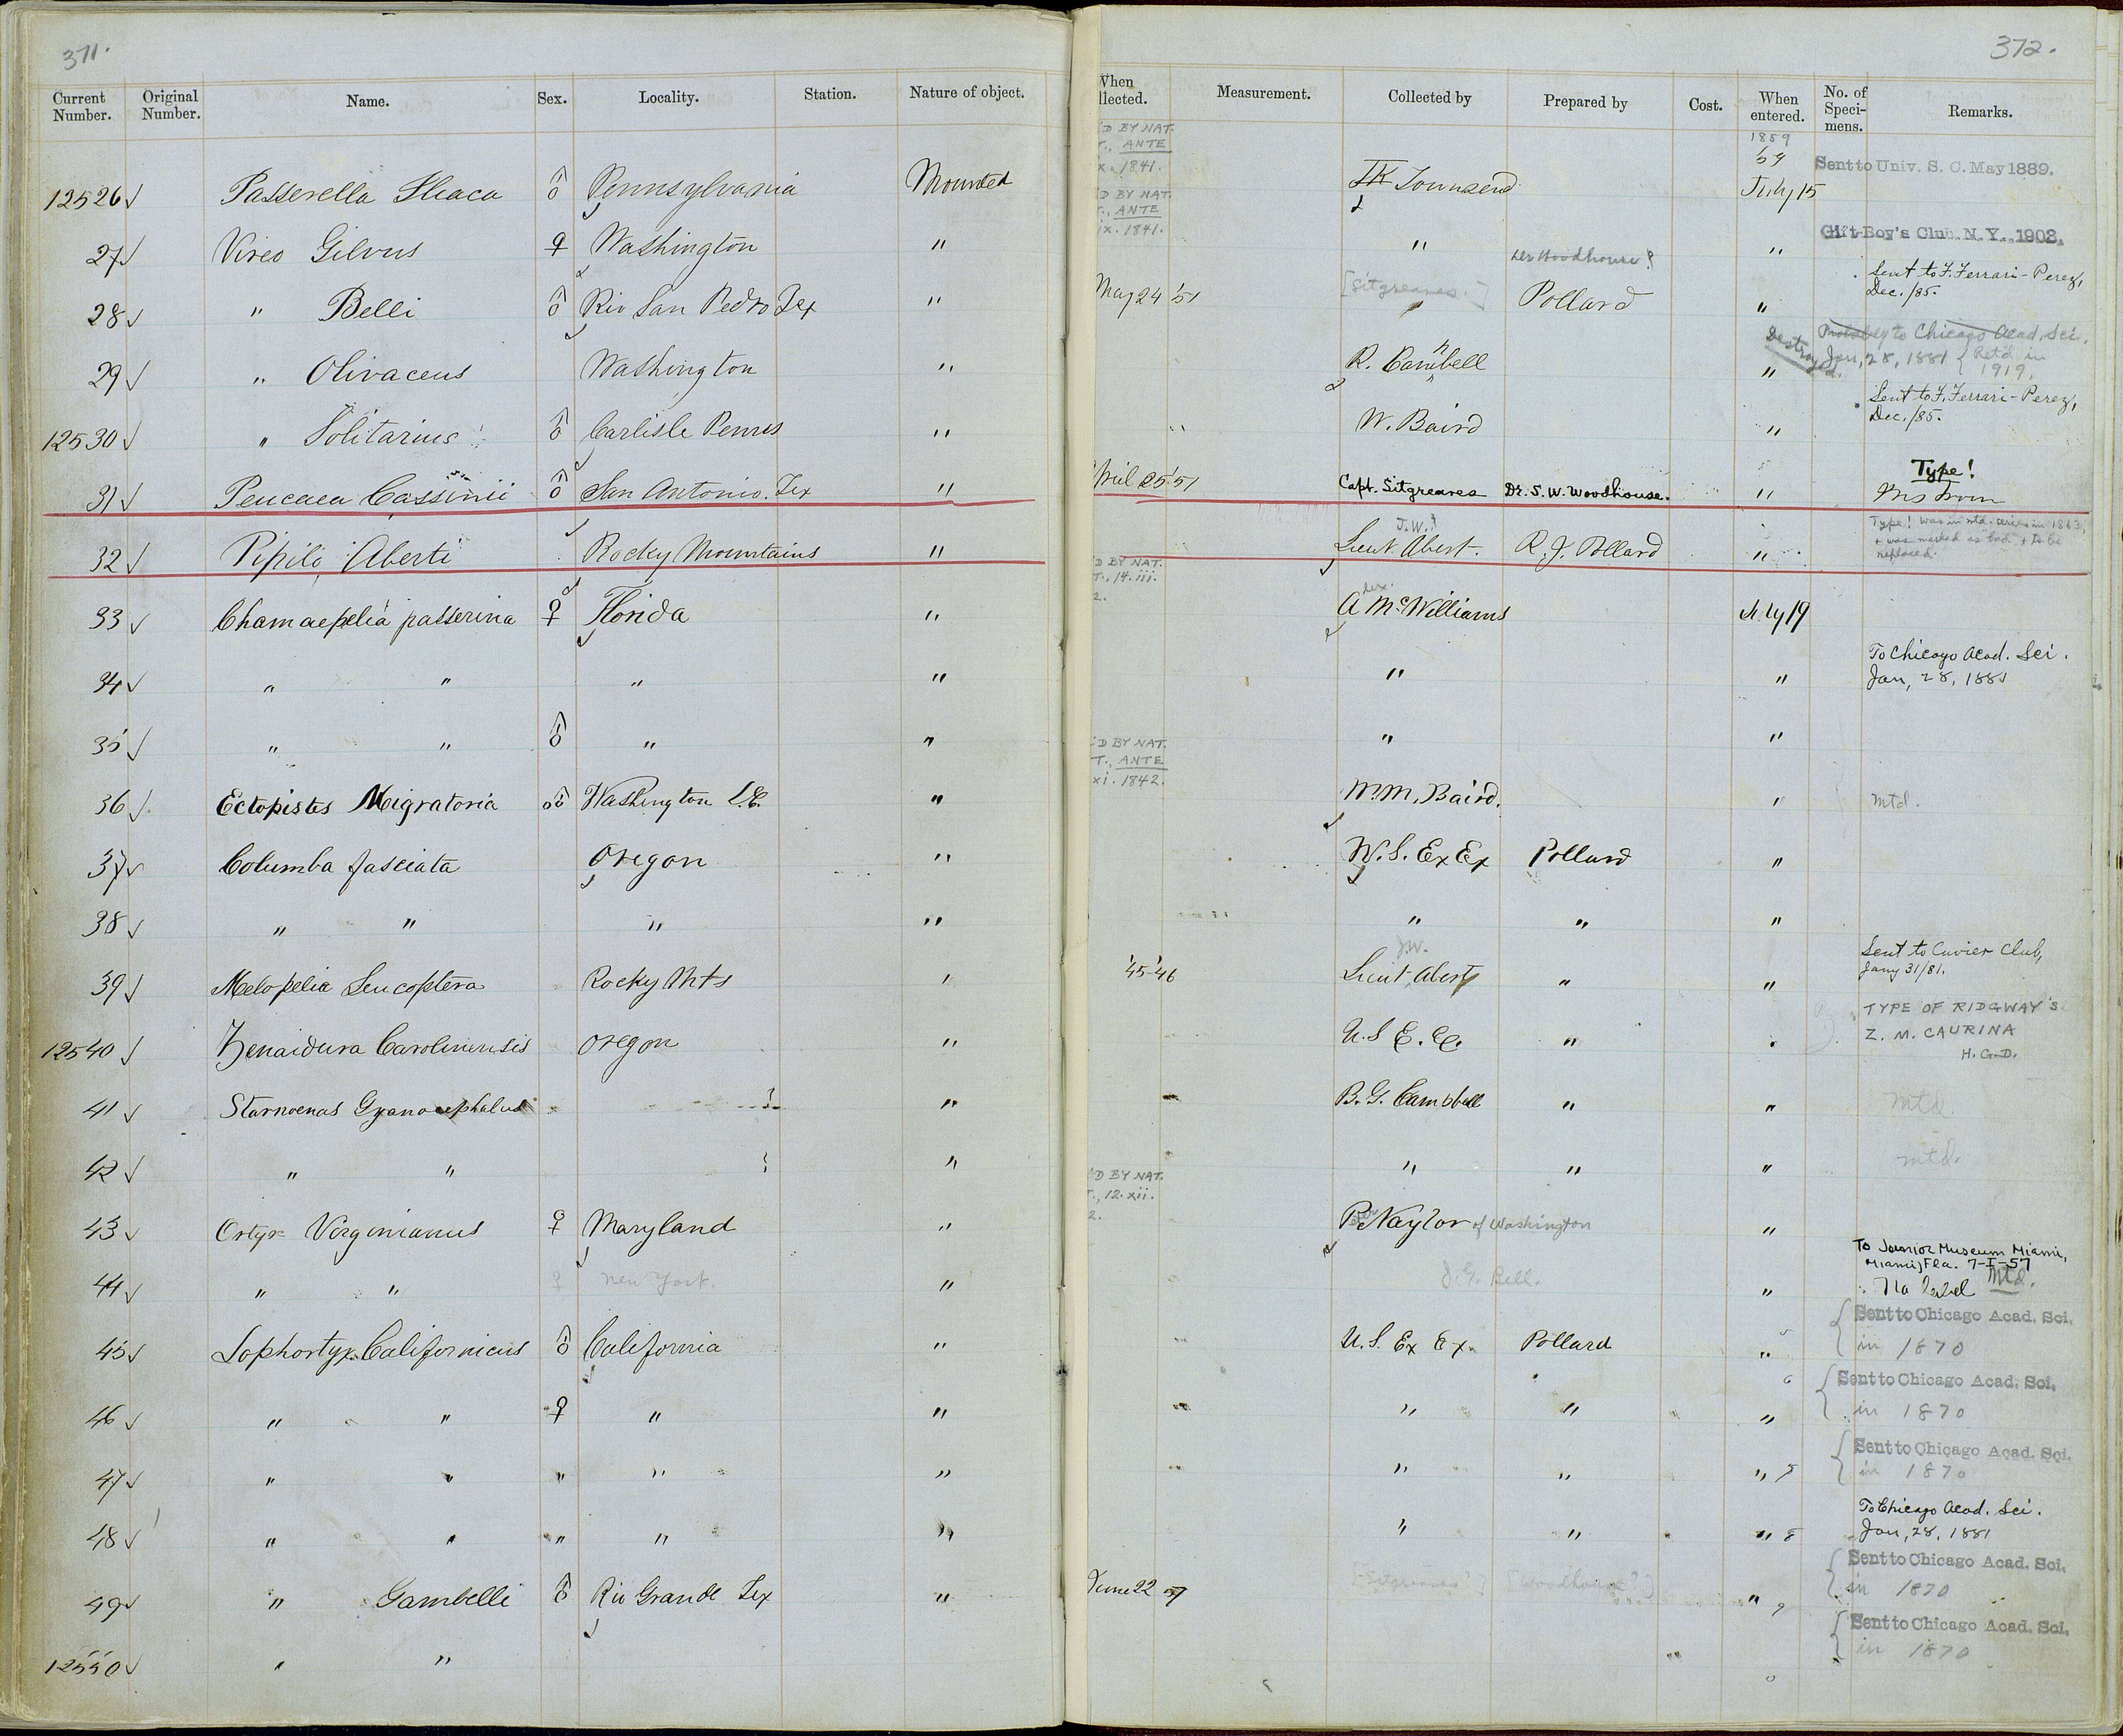 371.
Current Number. Original Number. Name. Sex. Locality. Station. Nature of object.
12526 ✓ Passerella Iliaca ♂ Pennsylvania Mounted
27 ✓ Vireo Gilvus ♀ Washington "
28 ✓ " Belli ♂ Rio San Pedro Tex "
29 ✓ " Olivaceus Washington "
12530 ✓ " Solitarius ♂ Carlisle Penns "
31 ✓ Peucaea Cassinii ♂ San Antonio. Tex "
32 ✓ Pipilo Aberti Rocky Mountains "
33 ✓ Chamaepelia passerina ♀ Florida "
34 ✓ " " " "
35 ✓ " " ♂ " "
36 ✓ Ectopistes Migratoria ♂ Washington D.C. "
37 ✓ Columba fasciata Oregon "
38 ✓ " " " "
39 ✓ Melopelia Leucoptera Rocky Mts "
12540 ✓ Zenaidura Carolinensis Oregon "
41 ✓ Starnoenas Cyanocephalus "
42 ✓ " " "
43 ✓ Ortyx Virginianus ♀ Maryland "
44 ✓ " " ♀ New York. "
45 ✓ Lophortyx Californicus ♂ California "
46 ✓ " " ♀ " "
47 ✓ " " " " "
48 ✓ " " " " "
49 ✓ " Gambelli ♂ Rio Grande Tex "
12550 ✓ " "
372.
When llected. Measurement. Collected by Prepared by Cost. When entered. No. of Speci-mens. Remarks.
'D BY NAT. T., ANTE x. 1841. JK Townsend 1859 59 July 15 Sent to Univ. S. C. May 1889.
D BY NAT. T., ANTE ix. 1841. " " Gift Boy's Club. N. Y., 1903.
May 24 '51 [Sitgreaves.] " Dr Woodhouse? Pollard " Sent to F. Ferrari-Perez, Dec. /85.
R. Campbell " Destroyed. Probably to Chicago Acad. Sci. Jan, 28, 1881 { Ret'd in 1919.
" W. Baird " Sent to F. Ferrari-Perez, Dec. /85.
April 25 '51 Capt. Sitgreaves Dr. S. W. Woodhouse. " Type!
J.W. Lieut. Abert. R. J. Pollard " Type! was in mtd. series in 1863, + was marked as bad + to be replaced.
D BY NAT. T., 14. iii. 2. Alex. McWilliams July 19
" " To Chicago Acad. Sci. Jan, 28, 1881
" "
'D BY NAT. T., ANTE xi. 1842. Wm. M. Baird. " Mtd.
U.S. Ex Ex Pollard "
" " "
'45-'46 J.W. Lieut. Abert " " Sent to Cuvier Club, Jany 31/81.
U.S E. E. " " TYPE OF RIDGWAY'S Z. M. CAURINA H. G. D.
B. G. Campbell " " Mtd.
" " " mtd.
'D BY NAT. T., 12. xii. 2. Peter Naylor of Washington "
J. G. Bell. " To Junior Museum Miami, Miami, Fla. 7-I-57 No label Mtd.
U.S. Ex Ex. Pollard " { Sent to Chicago Acad. Sci. in 1870
" " " " { Sent to Chicago Acad. Sci. in 1870
" " " " { Sent to Chicago Acad. Sci. in 1870
" " " To Chicago Acad. Sci. Jan, 28, 1881
June 22 51 [Sitgreaves?] [Woodhouse?] " { Sent to Chicago Acad. Sci. in 1870
{ Sent to Chicago Acad. Sci. in 1870